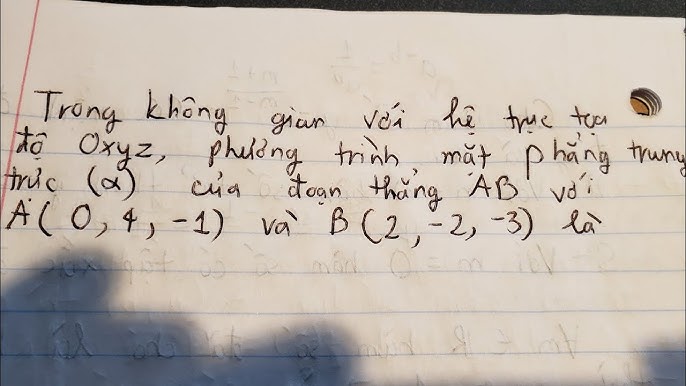 Trong không gian với hệ trục tọa
độ Oxyz, phương trình mặt phẳng trung
trức (α) của đoạn thẳng AB với
A(0, 4, -1) và B(2, -2, -3) là